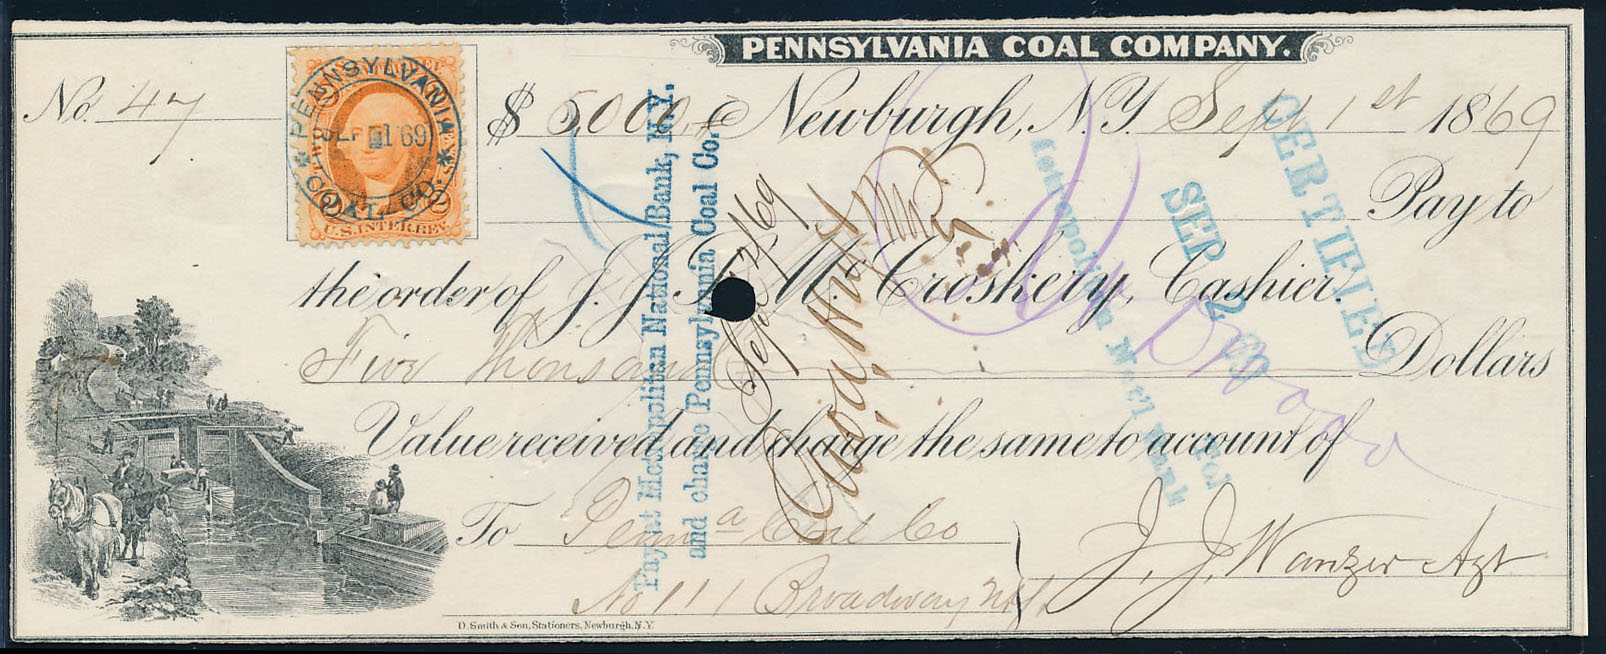 PENNSYLVANIA COAL COMPANY.
No. 47
$ 5,000. Newburgh, N.Y. Sept 1st 1869
U.S. INTER. REV.
PENNSYLVANIA
SEP 1 69
COAL CO.
2 2
Pay to
the order of J. J. M. Croskery, Cashier.
Five Thousand Dollars
Value received and charge the same to account of
To Penna Coal Co
No 111 Broadway N.Y.
J. J. Wanzer Agt
D. Smith & Son, Stationers, Newburgh, N.Y.
Pay at Metropolitan National Bank, N.Y.
and charge Pennsylvania Coal Co.
Sept 2/69
CERTIFIED
SEP 2 69
Metropolitan Nat'l Bank